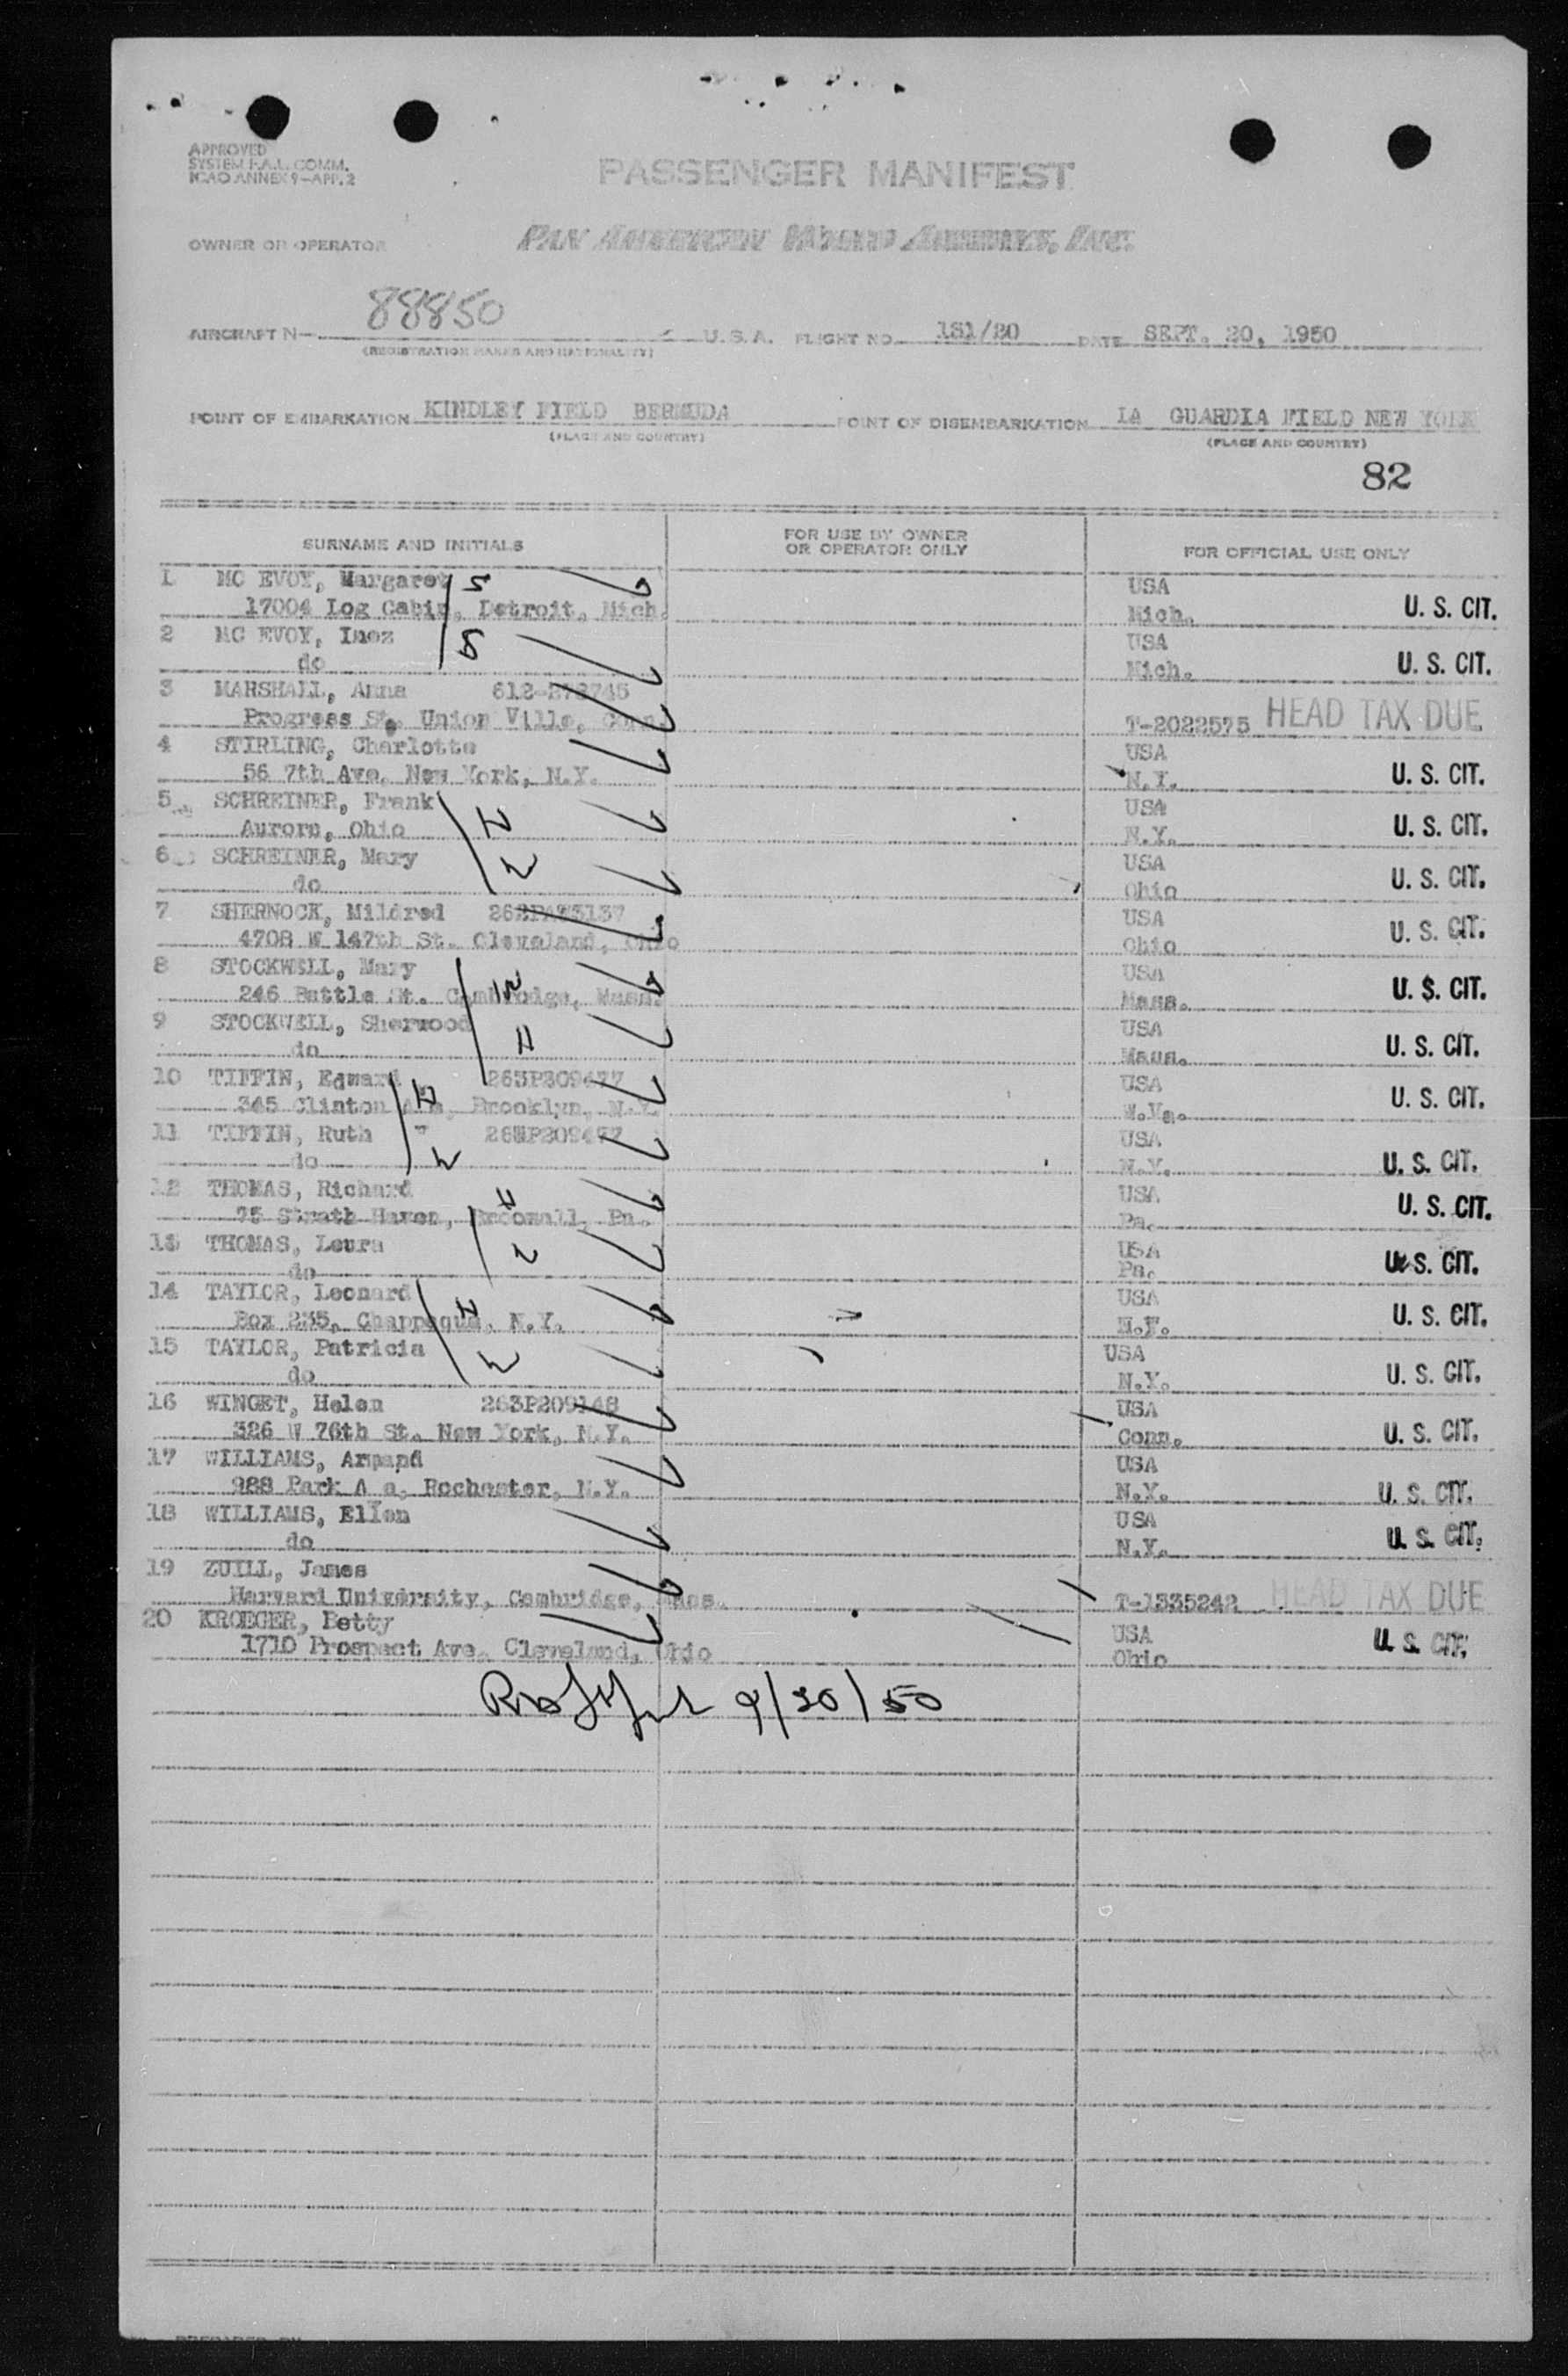 APPROVED
SYSTEM F.A.L. COMM.
ICAO ANNEX 9-APP. 2
PASSENGER MANIFEST
OWNER OR OPERATOR PAN AMERICAN WORLD AIRWAYS, INC.
AIRCRAFT N- 88850 U.S.A. FLIGHT NO. 131/20 DATE SEPT. 20, 1950
(REGISTRATION MARKS AND NATIONALITY)
POINT OF EMBARKATION KINDLEY FIELD BERMUDA POINT OF DISEMBARKATION LA GUARDIA FIELD NEW YORK
(PLACE AND COUNTRY) (PLACE AND COUNTRY)
82
SURNAME AND INITIALS FOR USE BY OWNER OR OPERATOR ONLY FOR OFFICIAL USE ONLY
1 MC EVOY, Margaret 5 USA
17004 Log Cabin, Detroit, Mich. Mich. U. S. CIT.
2 MC EVOY, Inez 5 USA
do Mich. U. S. CIT.
3 MARSHALL, Anna
Progress St. Union Ville, Conn. T-2022575 HEAD TAX DUE
4 STIRLING, Charlotte USA
56 7th Ave. New York, N.Y. N.Y. U. S. CIT.
5 SCHREINER, Frank USA
Aurora, Ohio N.Y. U. S. CIT.
6 SCHREINER, Mary USA
do Ohio U. S. CIT.
7 SHERNOCK, Mildred USA
4708 W 147th St. Cleveland, Ohio Ohio U. S. CIT.
8 STOCKWELL, Mary USA
246 Battle St. Cambridge, Mass. Mass. U. S. CIT.
9 STOCKWELL, Sherwood USA
do Mass. U. S. CIT.
10 TIFFIN, Edward 263P209477 USA
345 Clinton Ave, Brooklyn, N.Y. W.Va. U. S. CIT.
11 TIFFIN, Ruth " 263P209477 USA
do N.Y. U. S. CIT.
12 THOMAS, Richard USA
75 Strath Haven, Broomall, Pa. Pa. U. S. CIT.
13 THOMAS, Leura USA
do Pa. U. S. CIT.
14 TAYLOR, Leonard USA
Box 235, Chappaqua, N.Y. N.Y. U. S. CIT.
15 TAYLOR, Patricia USA
do N.Y. U. S. CIT.
16 WINGET, Helen 263P209148 USA
326 W 76th St. New York, N.Y. Conn. U. S. CIT.
17 WILLIAMS, Armand USA
988 Park A a, Rochester, N.Y. N.Y. U. S. CIT.
18 WILLIAMS, Ellen USA
do N.Y. U. S. CIT.
19 ZUILL, James
Harvard University, Cambridge, Mass. T-1335242 HEAD TAX DUE
20 KROEGER, Betty USA
1710 Prospect Ave, Cleveland, Ohio Ohio U. S. CIT.
9/20/50